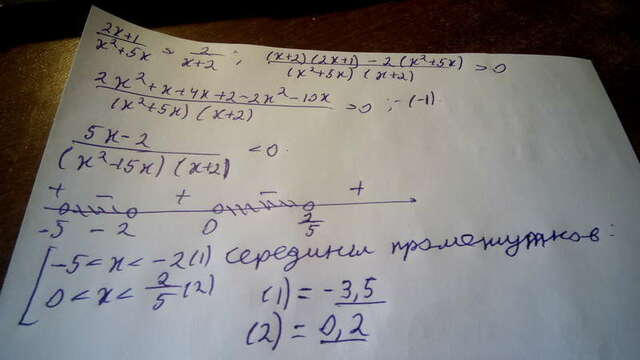 (2x+1)/(x²+5x) > 2/(x+2) ; ((x+2)(2x+1) - 2(x²+5x))/((x²+5x)(x+2)) > 0
(2x²+x+4x+2-2x²-10x)/((x²+5x)(x+2)) > 0 ; ·(-1).
(5x-2)/((x²+5x)(x+2)) < 0.
+ - + - +
-5 -2 0 2/5
[ -5 < x < -2 (1) середины промежутков:
0 < x < 2/5 (2) (1) = -3,5
(2) = 0,2